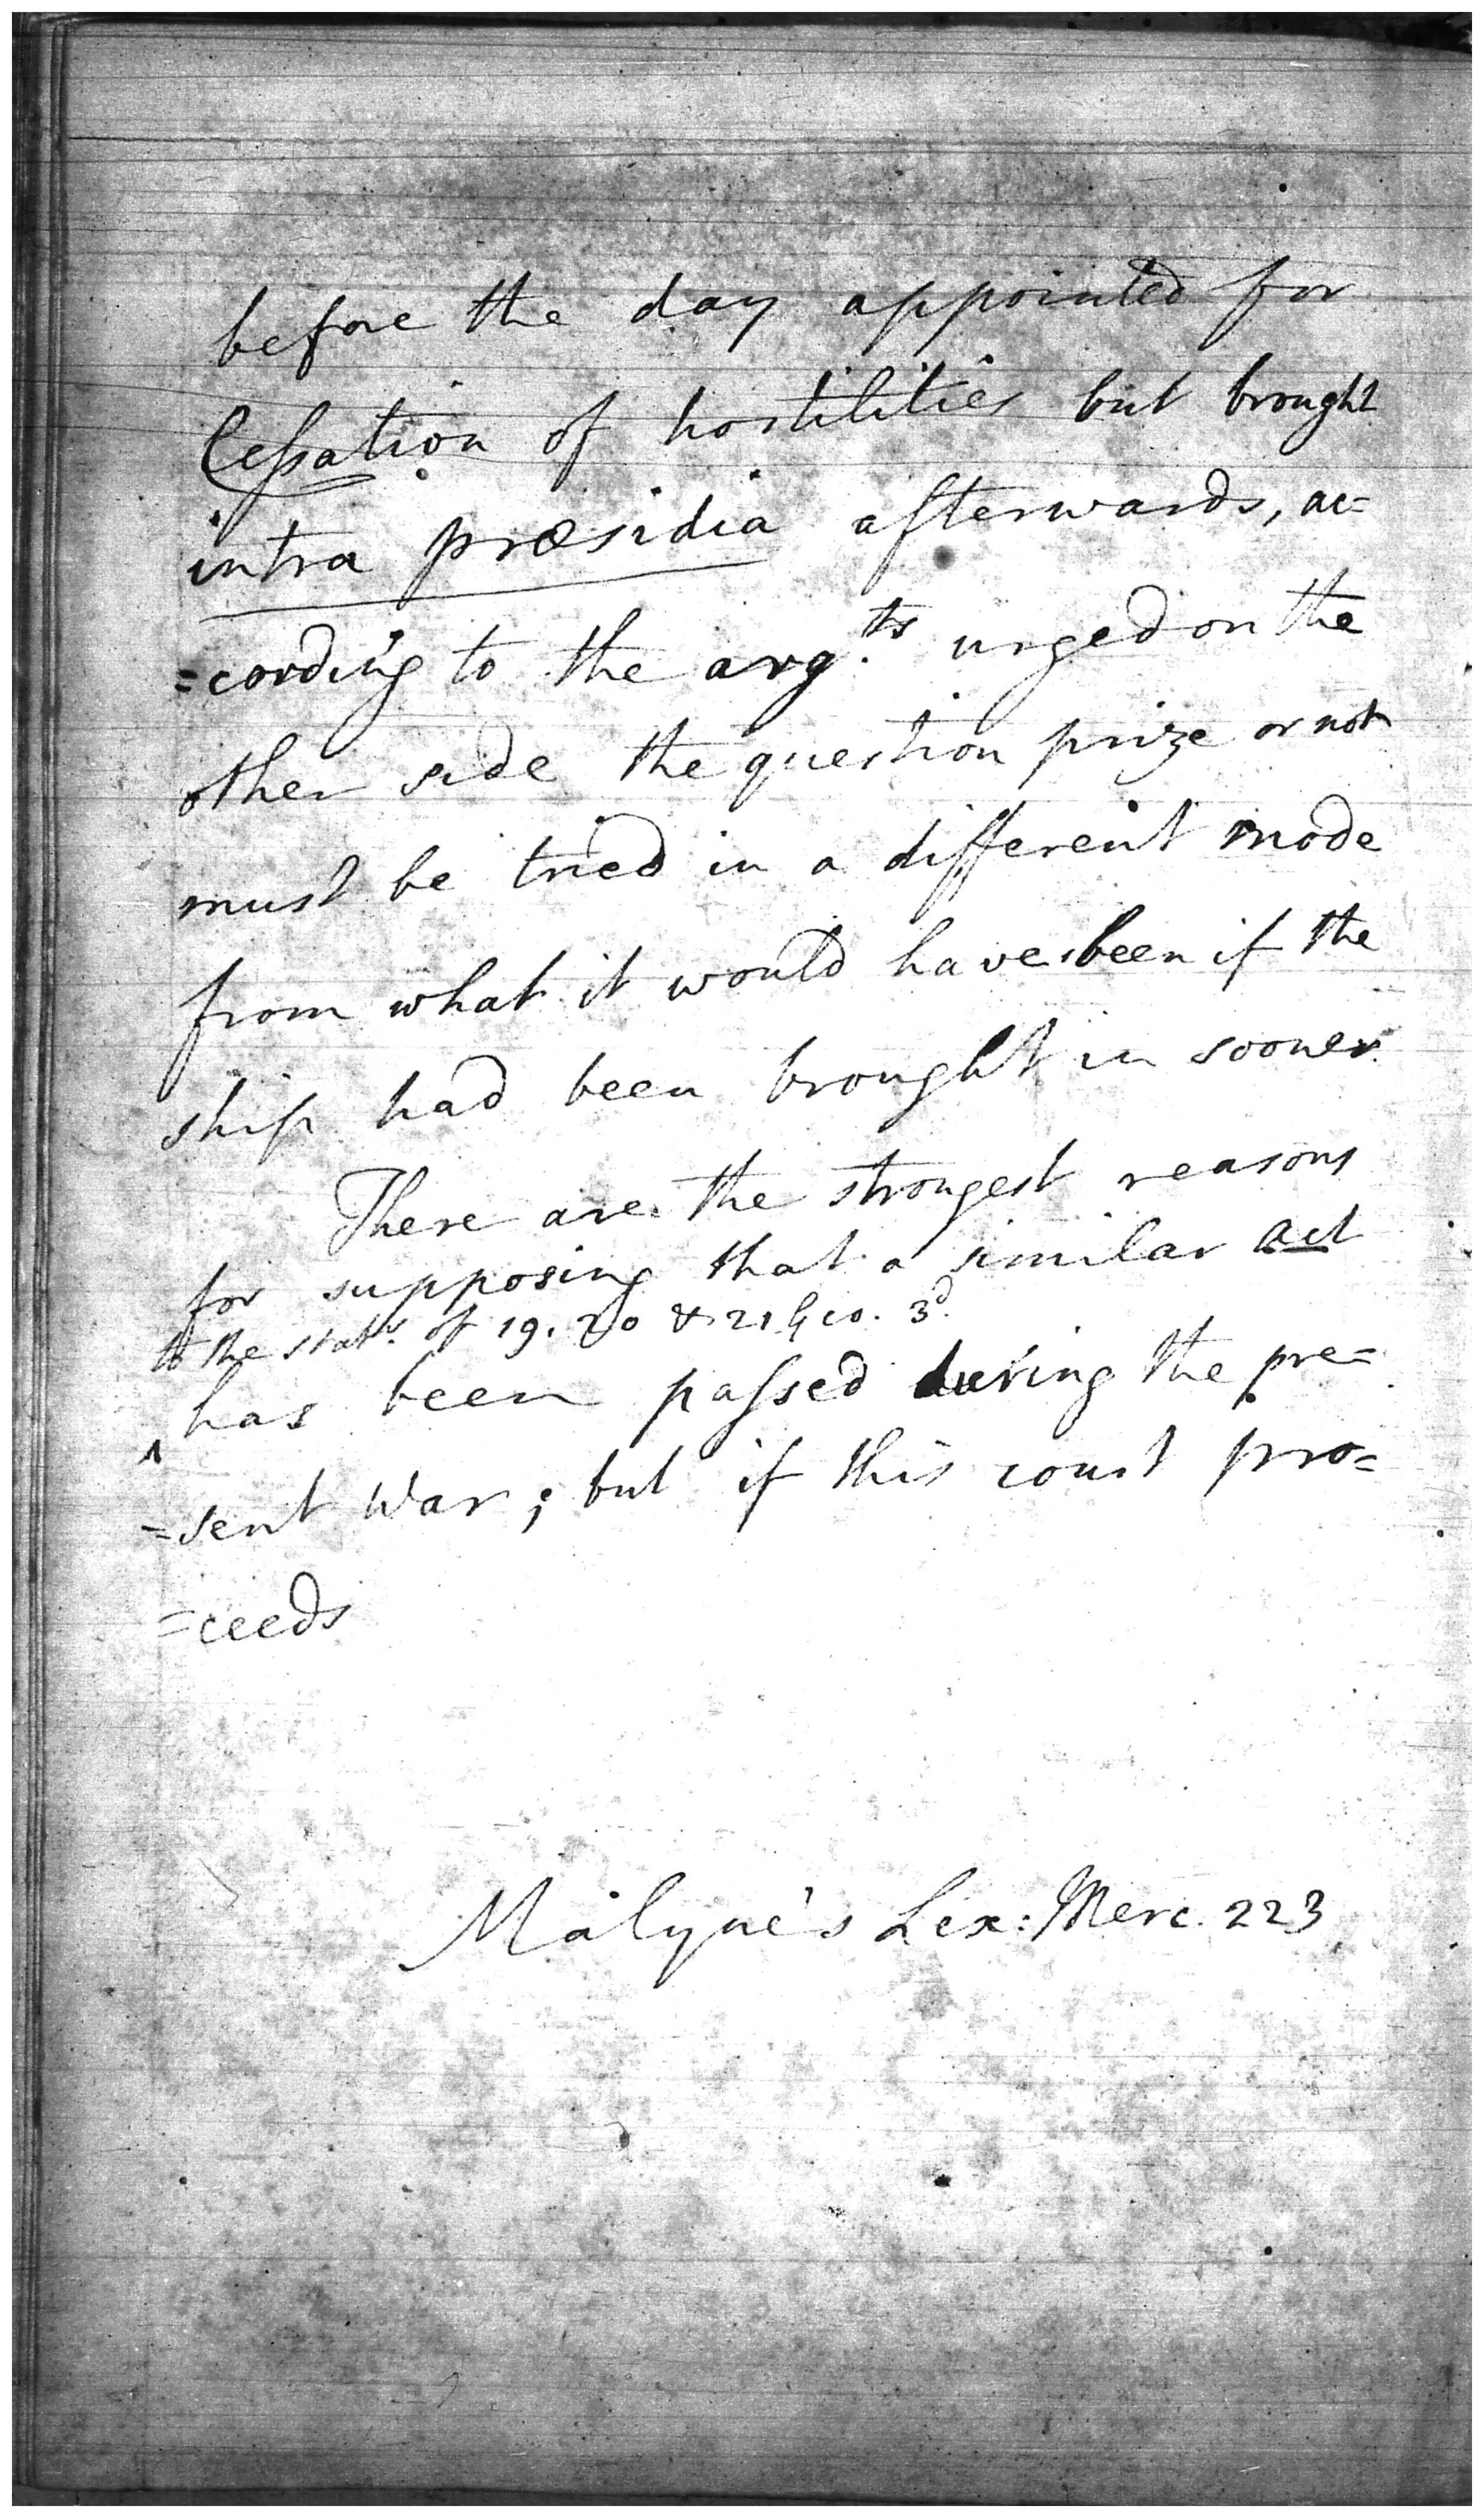 before the day appointed for
Cessation of hostilities but brought
intra præsidia afterwards, ac=
=cording to the arg.ts urged on the
other side the question prize or not
must be tried in a different mode
from what it would have been if the
ship had been brought in sooner
There are the strongest reasons
for supposing that a similar act
to the stats. of 19. 20 & 21 Geo. 3d.
^ has been passed during the pre=
=sent War; but if this court pro=
=ceeds
Malyne's Lex: Merc. 223